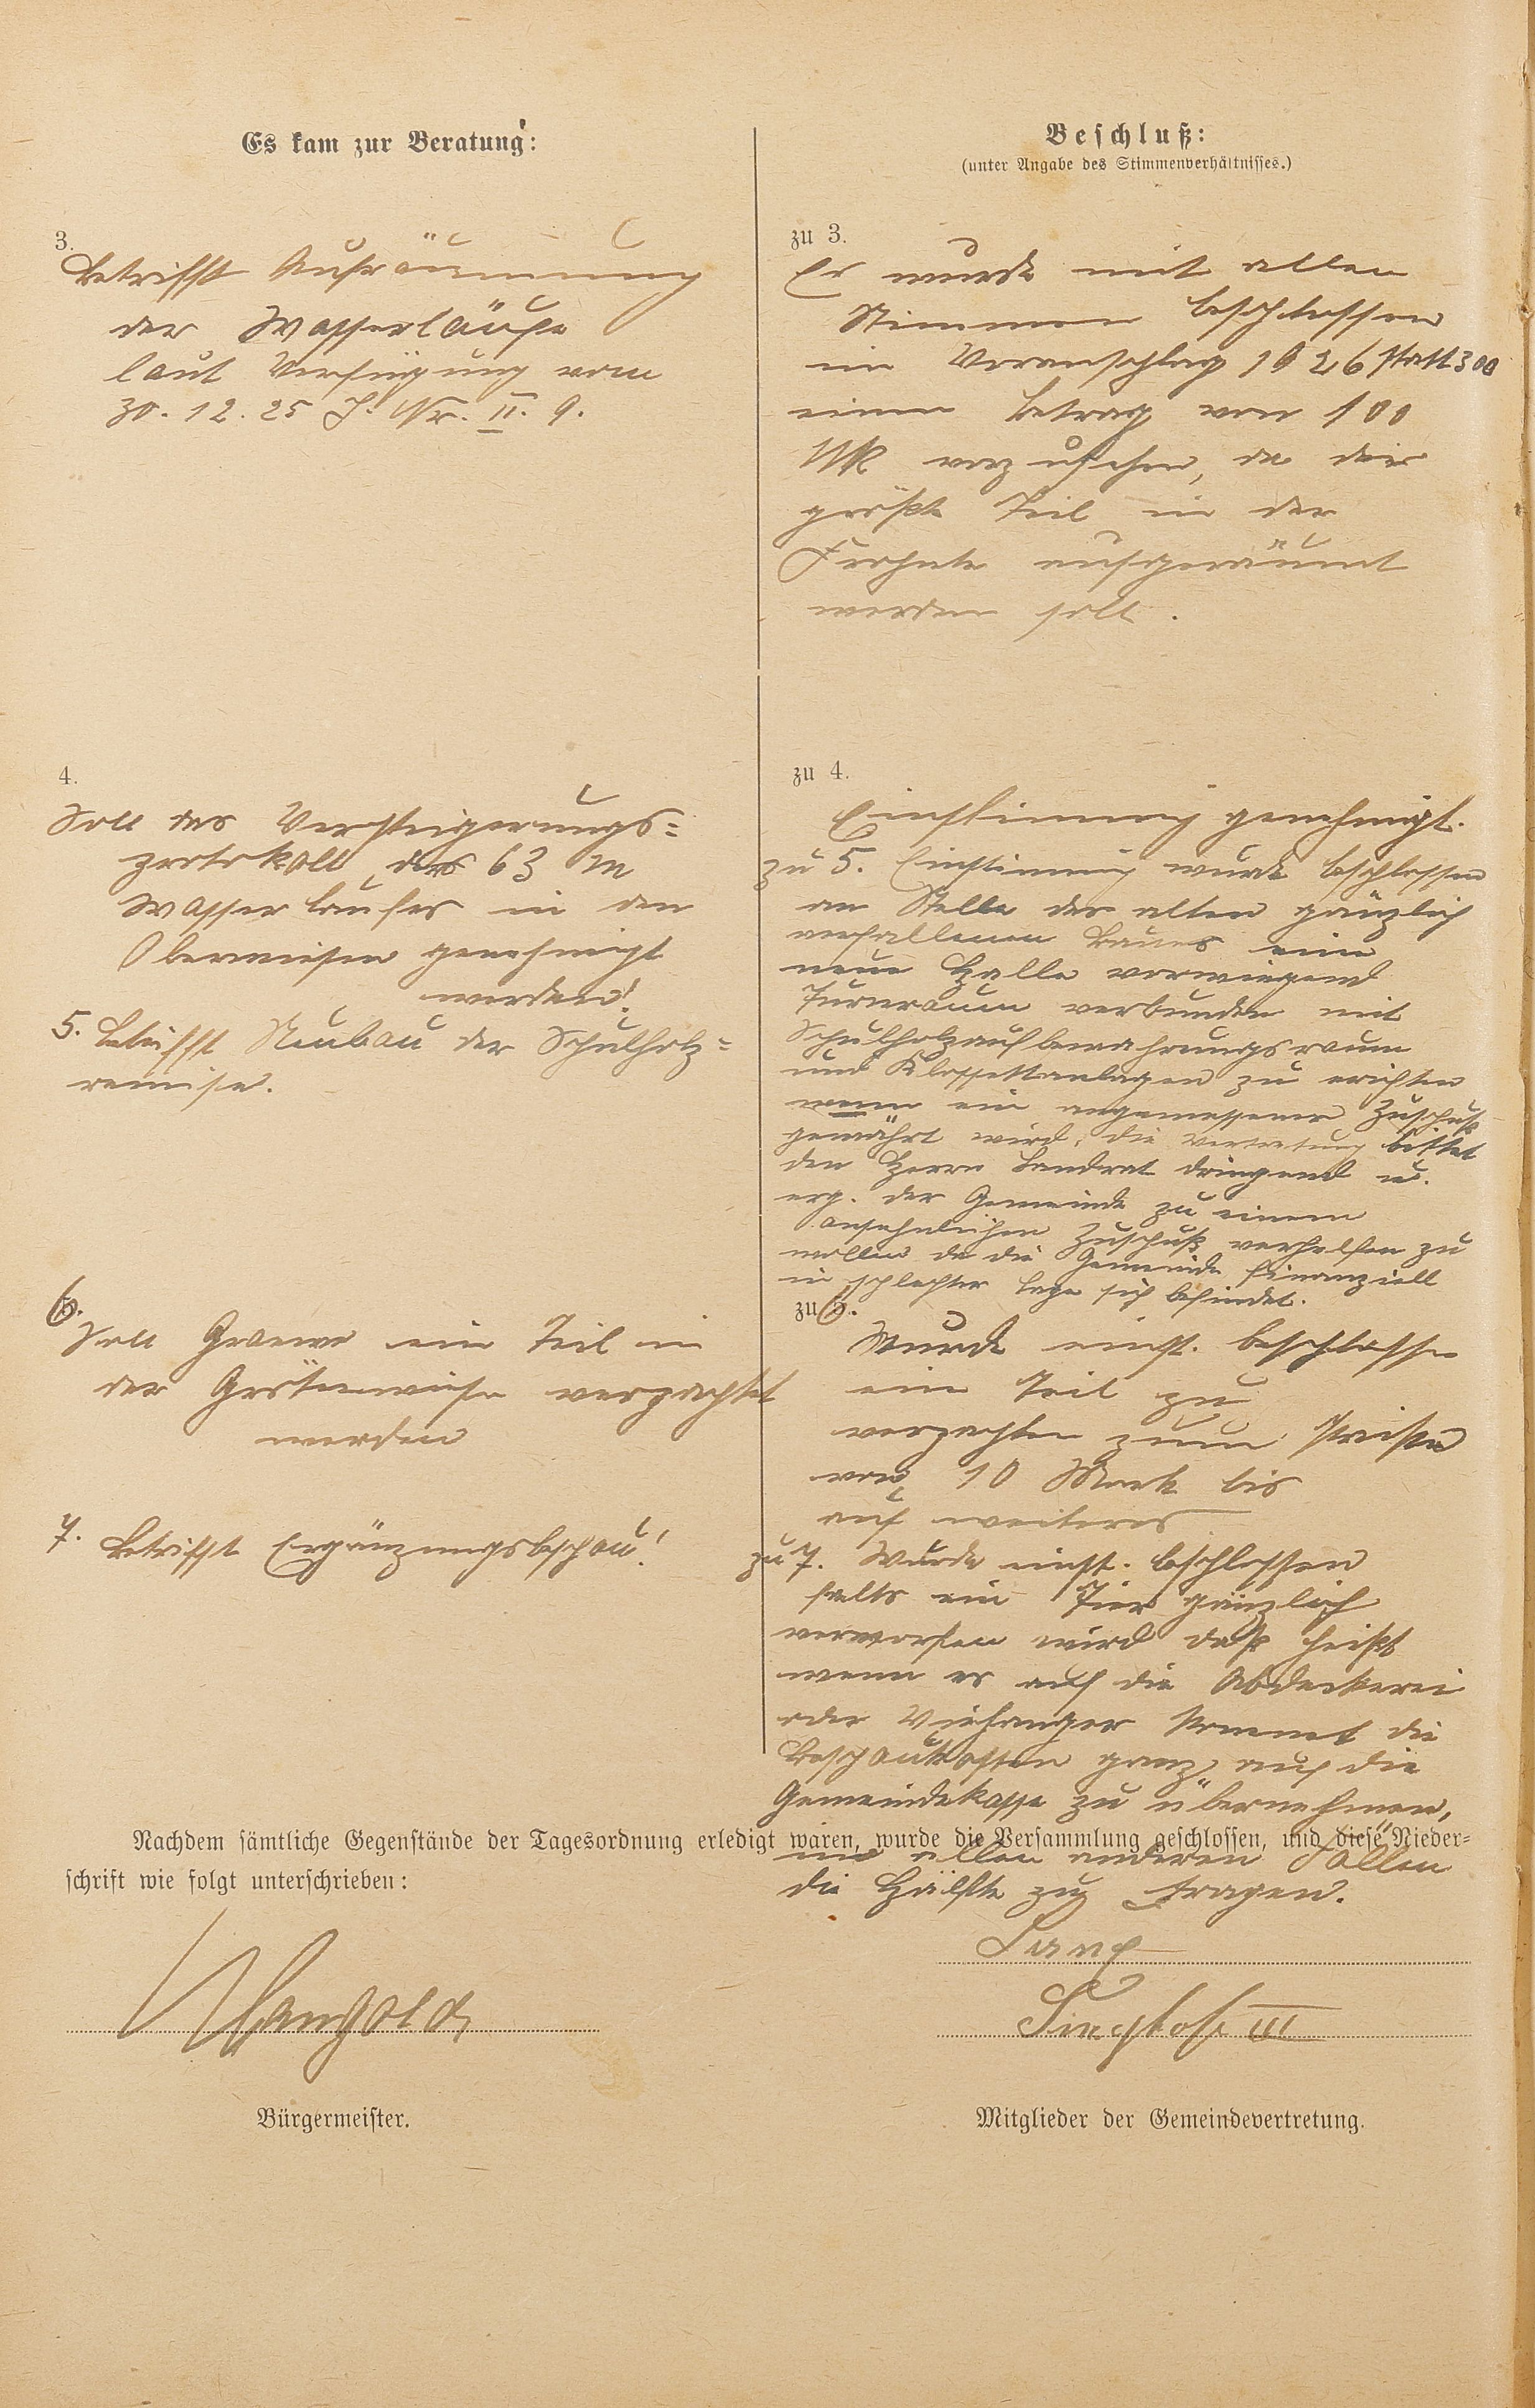 Es kam zur Beratung:
3.
Betrifft Aufräumung
der Wasserläufe
laut Verfügung vom
30. 12. 25 J. Nr. II. 9.
4.
Soll das Versteigerungs-
protokoll des 63 m
Wasserlaufes in den
Oberwiesen genehmigt
werden!
5. Betrifft Neubau der Schulholz-
remise.
6.
Soll ein Teil in
der verpachtet
werden
7. Betrifft Ergänzungsbschau!
Beschluß:
(unter Angabe des Stimmenverhältnisses.)
zu 3.
Es wurde mit allen
Stimmen beschlossen
im Voranschlag 1926 statt 300
einen Betrag von 100
Mk vorzusehen, da der
größte Teil in der
Frohnte aufgeräumt
werden soll.
zu 4.
Einstimmig genehmigt.
zu 5. Einstimmig wurde beschlossen
an Stelle des alten gänzlich
verfallenen Baues eine
neue Halle vorwiegend
Turnraum verbunden mit
Schulholzaufbewahrungsraum
und Klossettanlagen zu erichten
wenn ein angemessener Zuschuß
gewährt wird; die Vertretung bittet
den Herrn Landrat dringend u.
erg. der Gemeinde zu einem
ansehnlichen Zuschuß verhelfen zu
wollen da die Gemeinde finanziell
in schlechter Lage sich befindet.
zu 6.
Wurde einst. beschlossen
ein Teil zu
verpachten zum Preise
von 10 Mark bis
auf weiteres
zu 7. Wurde einst. beschlossen
falls ein Tier gänzlich
verworfen wird daß heißt
wenn es auf die Abdeckerei
oder Viehanger kommt die
Beschaukosten ganz auf die
Gemeindekasse zu übernehmen,
in allen anderen Fällen
die Hälfte zu tragen.
Nachdem sämtliche Gegenstände der Tagesordnung erledigt waren, wurde die Versammlung geschlossen, und diese Nieder-
schrift wie folgt unterschrieben:
Lang
Mangold
III
Bürgermeister.
Mitglieder der Gemeindevertretung.